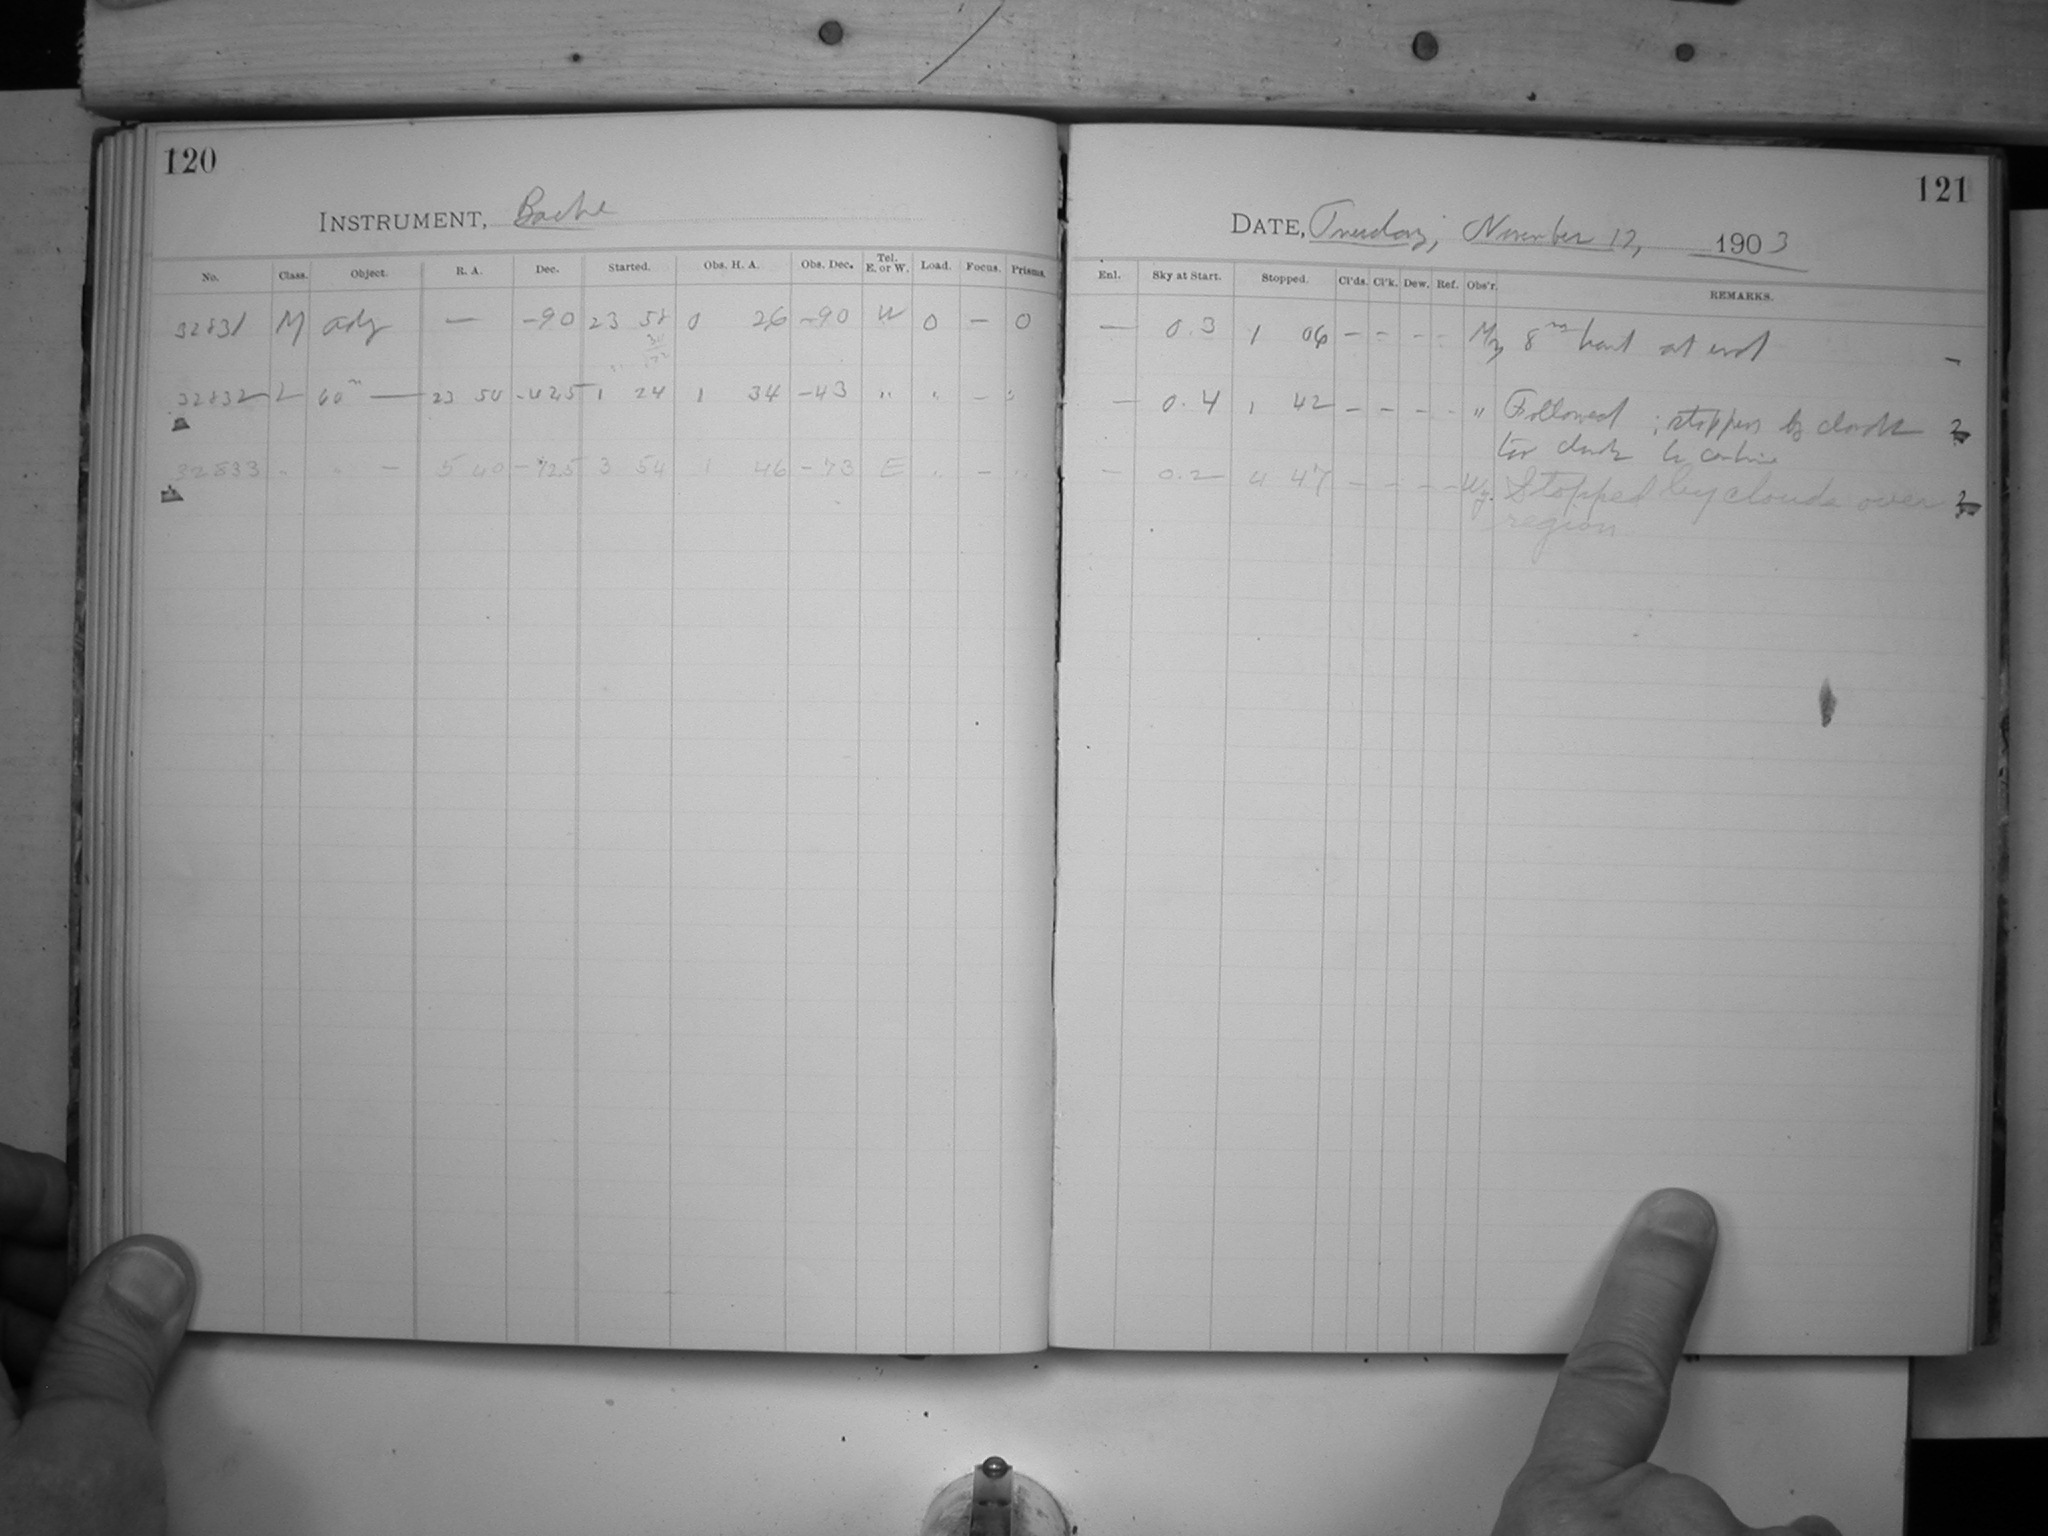 120
INSTRUMENT, Bache
No. Class. Object. R. A. Dec. Started. Obs. H. A. Obs. Dec. Tel. E. or W. Load. Focus. Prisms.
32831 M adj — -90 23 58 0 26 -90 W 0 — 0
32832 L 60m — 23 50 -425 1 24 1 34 -43 " " — "
32833 " " — 5 40 -725 3 54 1 46 -73 E " — "
121
DATE, Tuesday, November 17, 1903
Enl. Sky at Start. Stopped. Cl'ds. Cl'k. Dew. Ref. Obs'r. REMARKS.
— 0.3 1 06 — — — — 8m at end —
— 0.4 1 42 — — — — " Followed ; stopped by clouds 2
to continue
— 0.2 4 47 — — — — Wy. Stopped by clouds over 2
region